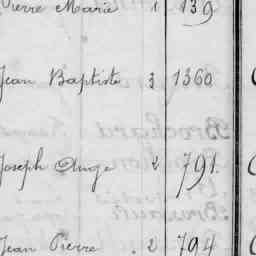 Pierre Marie 1 139
Jean Baptiste 3 1360
Joseph Ange 2 791.
Jean Pierre . 2 794